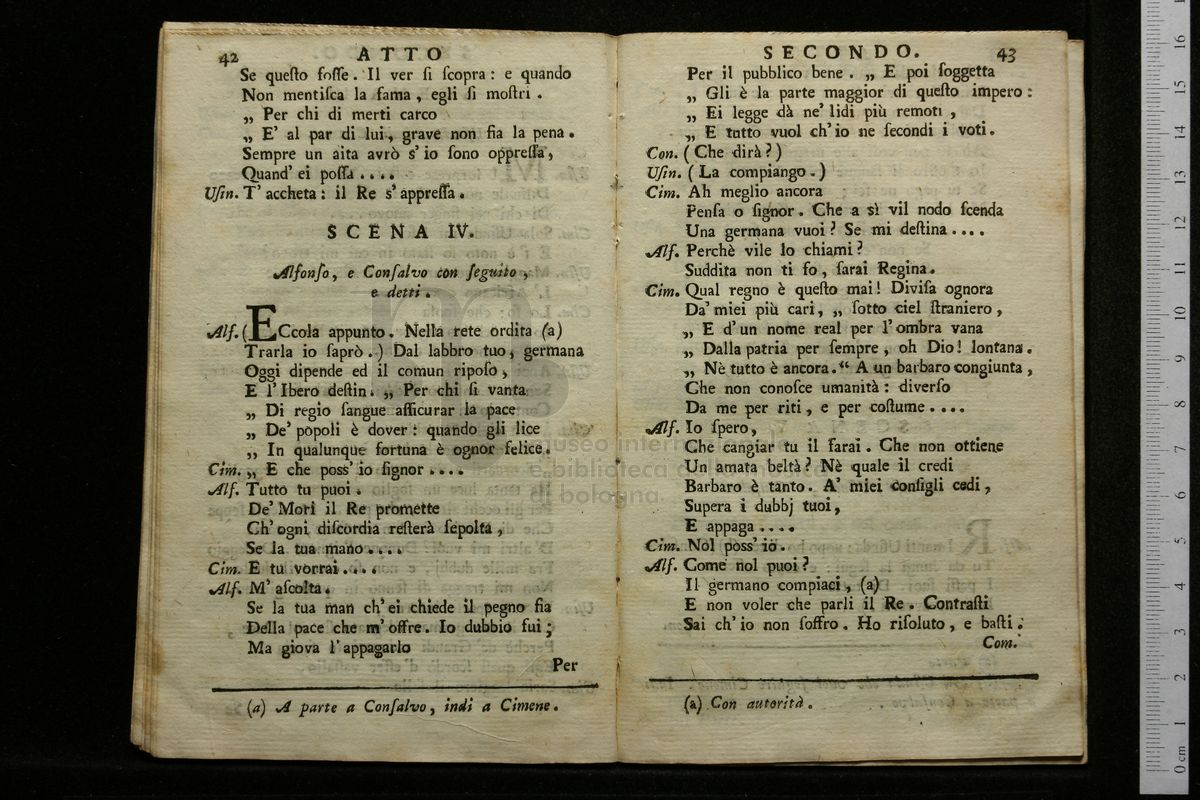 42 ATTO
Se queſto foſſe. Il ver ſi ſcopra: e quando
Non mentiſca la fama, egli ſi moſtri.
„ Per chi di merti carco
„ E' al par di lui, grave non fia la pena.
Sempre un aita avrò s' io ſono oppreſſa,
Quand' ei poſſa ....
Uſin. T' accheta: il Re s' appreſſa.
SCENA IV.
Alfonſo, e Conſalvo con ſeguito,
e detti.
Alf. (ECcola appunto. Nella rete ordita (a)
Trarla io ſaprò.) Dal labbro tuo, germana
Oggi dipende ed il comun ripoſo,
E l' Ibero deſtin. „ Per chi ſi vanta
„ Di regio ſangue aſſicurar la pace
„ De' popoli è dover: quando gli lice
„ In qualunque fortuna è ognor felice.
Cim. „ E che poss' io ſignor ....
Alf. Tutto tu puoi.
De' Mori il Re promette
Ch' ogni diſcordia reſterà ſepolta,
Se la tua mano ....
Cim. E tu vorrai ....
Alf. M' aſcolta.
Se la tua man ch' ei chiede il pegno fia
Della pace che m' offre. Io dubbio fui;
Ma giova l' appagarlo
Per
(a) A parte a Conſalvo, indi a Cimene.
SECONDO. 43
Per il pubblico bene. „ E poi ſoggetta
„ Gli è la parte maggior di queſto impero:
„ Ei legge dà ne' lidi più remoti,
„ E tutto vuol ch' io ne ſecondi i voti.
Con. (Che dirà?)
Uſin. (La compiango.)
Cim. Ah meglio ancora
Penſa o ſignor. Che a sì vil nodo ſcenda
Una germana vuoi? Se mi deſtina ....
Alf. Perchè vile lo chiami?
Suddita non ti fo, ſarai Regina.
Cim. Qual regno è queſto mai! Diviſa ognora
Da' miei più cari, „ ſotto ciel ſtraniero,
„ E d' un nome real per l' ombra vana
„ Dalla patria per ſempre, oh Dio! lontana.
„ Nè tutto è ancora.“ A un barbaro congiunta,
Che non conoſce umanità: diverſo
Da me per riti, e per coſtume ....
Alf. Io ſpero,
Che cangiar tu il farai. Che non ottiene
Un amata beltà? Nè quale il credi
Barbaro è tanto. A' miei conſigli cedi,
Supera i dubbj tuoi,
E appaga ....
Cim. Nol poss' io.
Alf. Come nol puoi?
Il germano compiaci, (a)
E non voler che parli il Re. Contraſti
Sai ch' io non ſoffro. Ho riſoluto, e baſti.
Com.
(a) Con autorità.